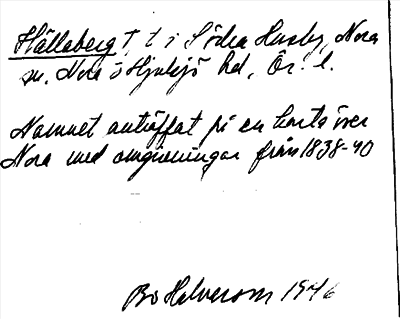 Hälleberg t, t i Södra Husby, Nora
sn. Nora o Hjulsjö hd, Ör. l.
Namnet anträffat på en karta över
Nora med omgivningar från 1838-40
Bo Halvarson 1946